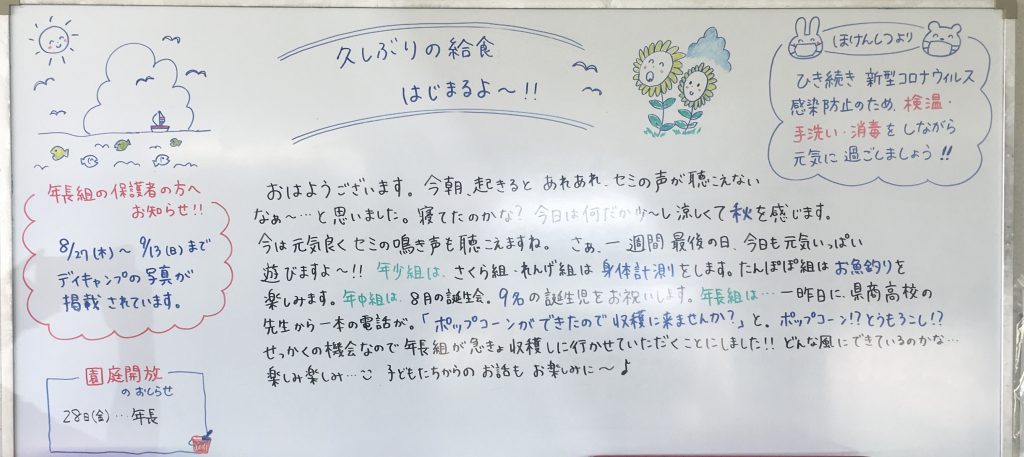 久しぶりの給食
はじまるよ〜!!
ほけんしつより
ひき続き 新型コロナウィルス
感染防止のため、検温・
手洗い・消毒をしながら
元気に過ごしましょう!!
年長組の保護者の方へ
お知らせ!!
8/27(木)〜9/13(日)まで
デイキャンプの写真が
掲載されています。
園庭開放
のおしらせ
28日(金)…年長
おはようございます。今朝、起きると あれあれ、セミの声が聴こえない
なぁ〜…と思いました。寝てたのかな?今日は何だか少〜し涼しくて秋を感じます。
今は元気良くセミの鳴き声も聴こえますね。さぁ、一週間最後の日、今日も元気いっぱい
遊びますよ〜!! 年少組は、さくら組・れんげ組は身体計測をします。たんぽぽ組はお魚釣りを
楽しみます。年中組は、8月の誕生会。9名の誕生児をお祝いします。年長組は…一昨日に、県商高校の
先生から一本の電話が。「ポップコーンができたので収穫に来ませんか?」と。ポップコーン!?とうもろこし!?
せっかくの機会なので年長組が急きょ収穫しに行かせていただくことにしました!! どんな風にできているのかな…
楽しみ楽しみ… 子どもたちからのお話も お楽しみに〜♪